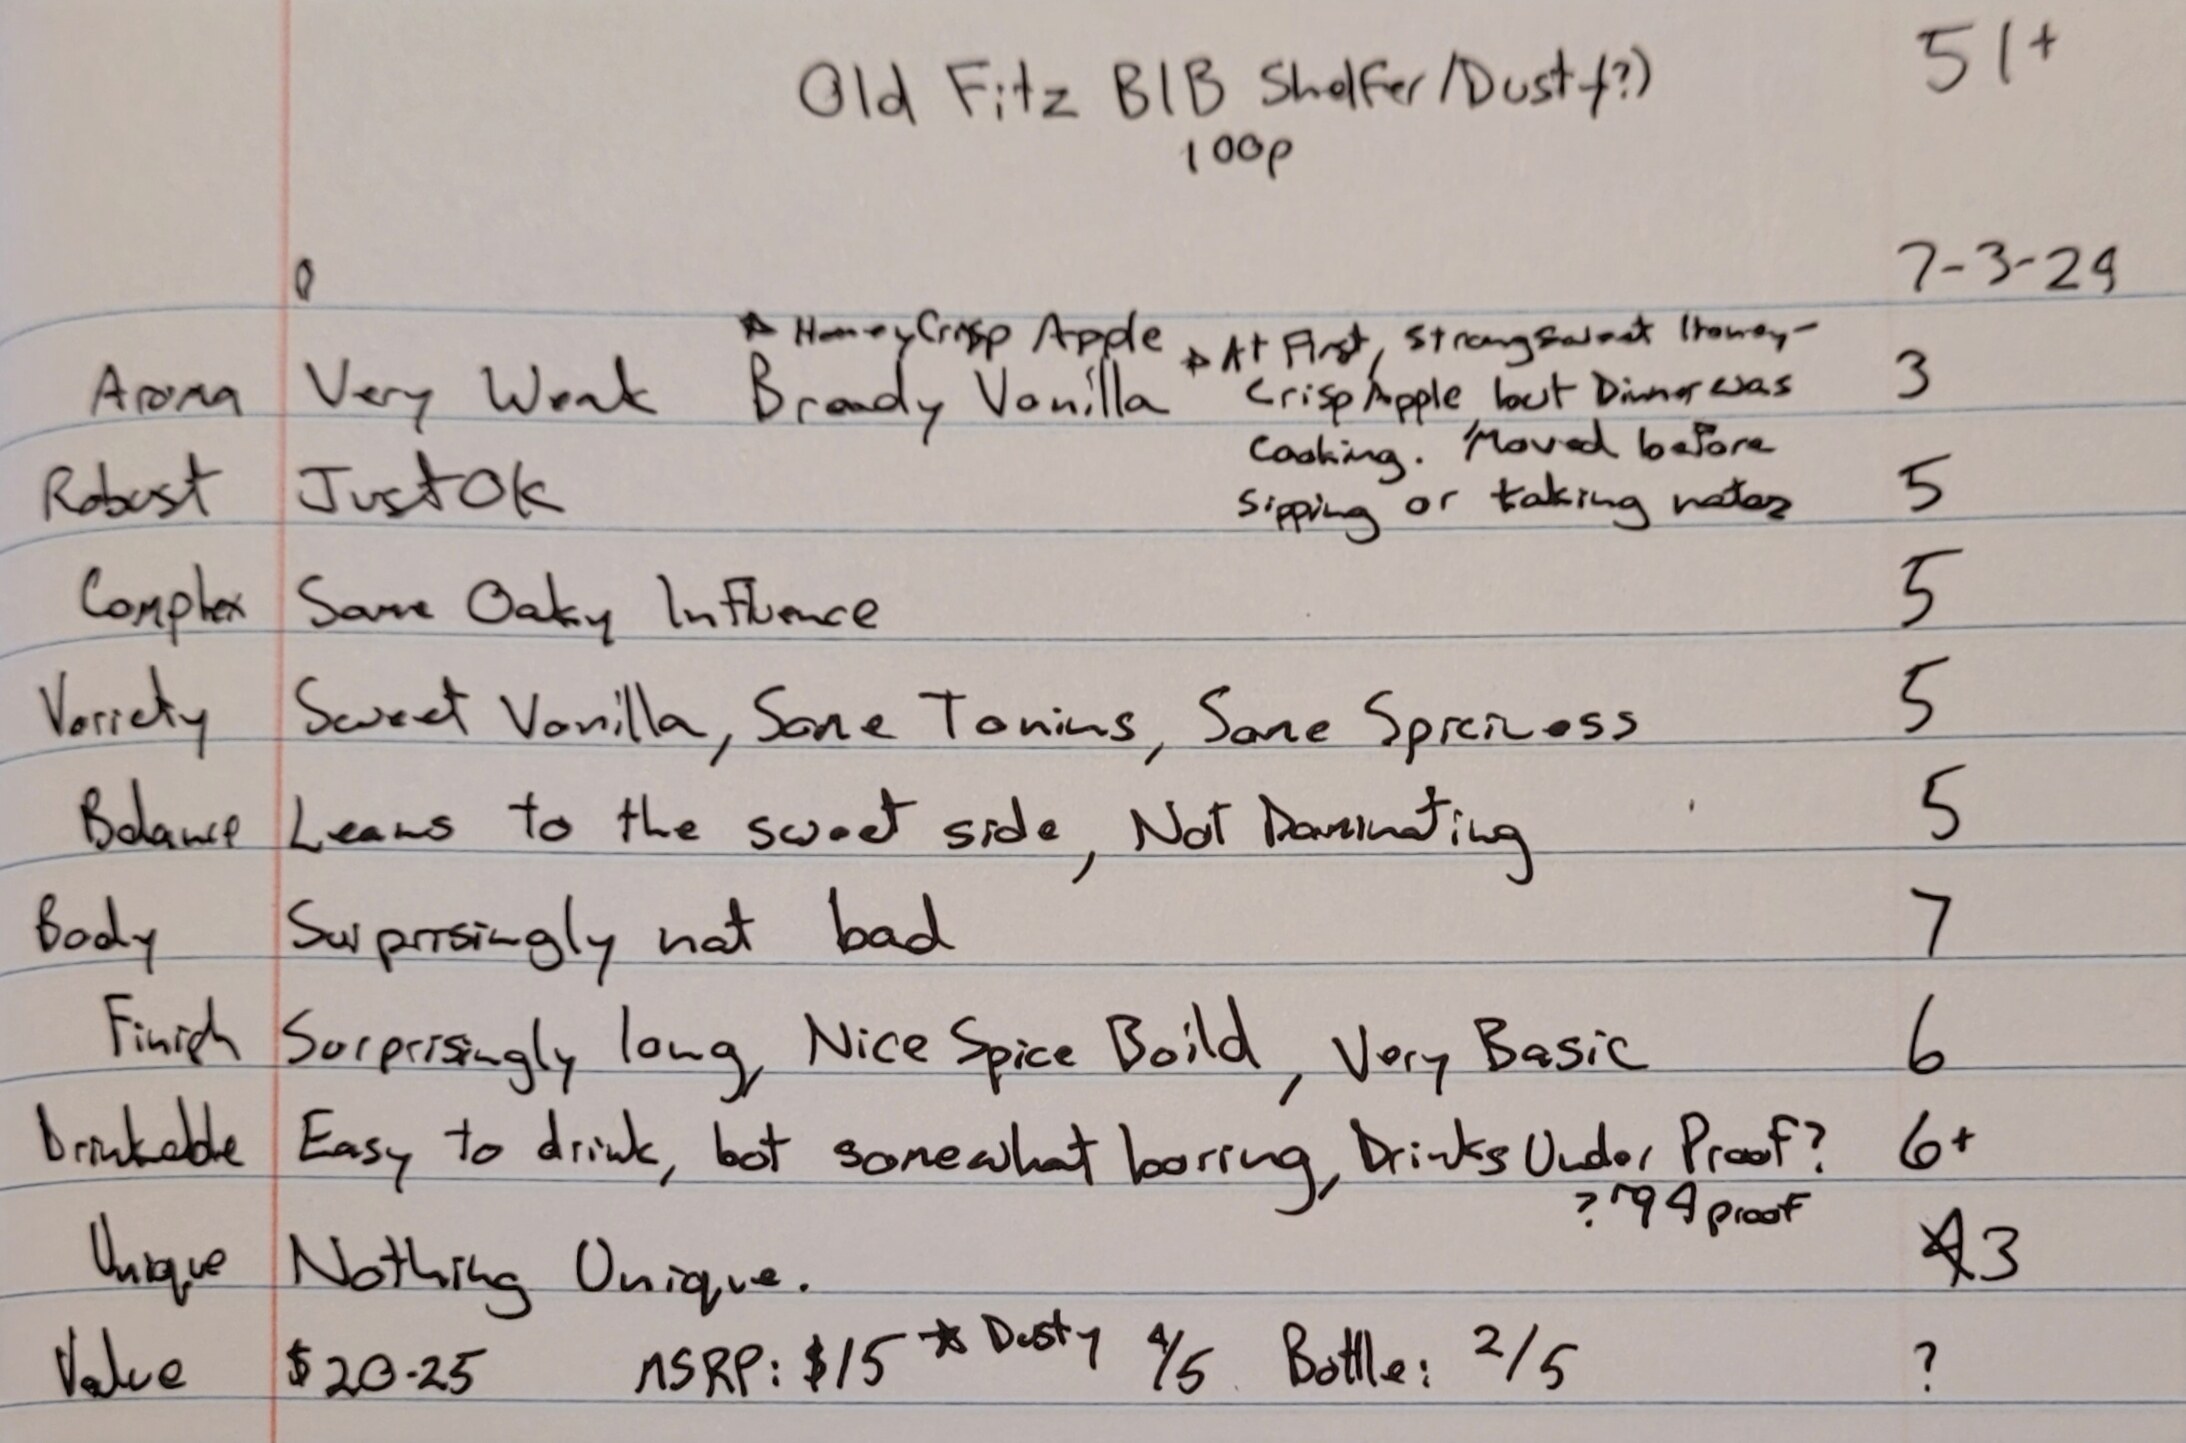 Old Fitz BIB Shelfer/Dusty(?) 51+
100p
7-3-24
* HoneyCrisp Apple
Aroma Very Weak Bready Vanilla 3
* At First, strong sweet Honey-
Crisp Apple but Dinner was
Cooking. Moved before
sipping or taking notes
Robust Just OK 5
Complex Some Oaky Influence 5
Variety Sweet Vanilla, Some Tanins, Some Spiciness 5
Balance Leans to the sweet side, Not Dominating 5
Body Surprisingly not bad 7
Finish Surprisingly long, Nice Spice Build, Very Basic 6
Drinkable Easy to drink, but somewhat boring, Drinks Under Proof? 6+
? ~94 proof
Unique Nothing Unique. 3
Value $20-25 MSRP: $15 * Dusty 4/5 Bottle: 2/5 ?